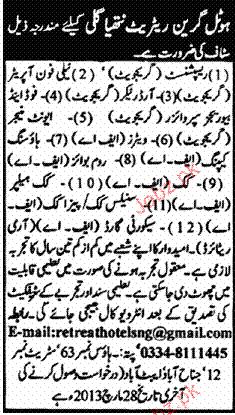 ہوٹل گرین ریٹریٹ نتھیا گلی کیلئے مندرجہ ذیل
سٹاف کی ضرورت ہے۔
(1) ریسپشنسٹ (گریجویٹ) (2) ٹیلی فون آپریٹر
(گریجویٹ) (3) ۔ آرڈر ٹیکر (گریجویٹ) (4) فوڈ اینڈ
بیوریجز سپروائزر (گریجویٹ) (5) ۔ ایونٹ منیجر
(گریجویٹ) (6) ۔ ویٹرز (ایف۔اے) (7) ہاؤسنگ
کیپنگ (ایف۔اے) (8) روم بوائز (ایف۔اے)
(9) ۔ کک (ایف۔اے) (10) ۔ کک ہیلپر
(ایف۔اے) (11) سنیکس کک/پیزا کک (ایف
۔اے) (12) ۔ سکیورٹی گارڈ (ایف۔اے) (آرمی
ریٹائرڈ) ۔ امیدوار کا اپنے شعبے میں کم از کم تین سال کا تجربہ
لازمی ہے۔ معقول تجربہ ہونے کی صورت میں تعلیمی قابلیت
میں چھوٹ دی جاسکتی ہے۔ تعلیمی سند اور تجربے کے سرٹیفکیٹ
کی تصدیق کے بعد انٹرویو کال بھیجی جائے گی۔ رابطہ
E-mail:retreathotelsng@gmail.com
0334-8111445 پتہ: ہاؤس نمبر 63' سٹریٹ نمبر
12' جناح آباد ایبٹ آباد (درخواست وصول کرنے کی
آخری تاریخ 28 مارچ 2013ء ہے)